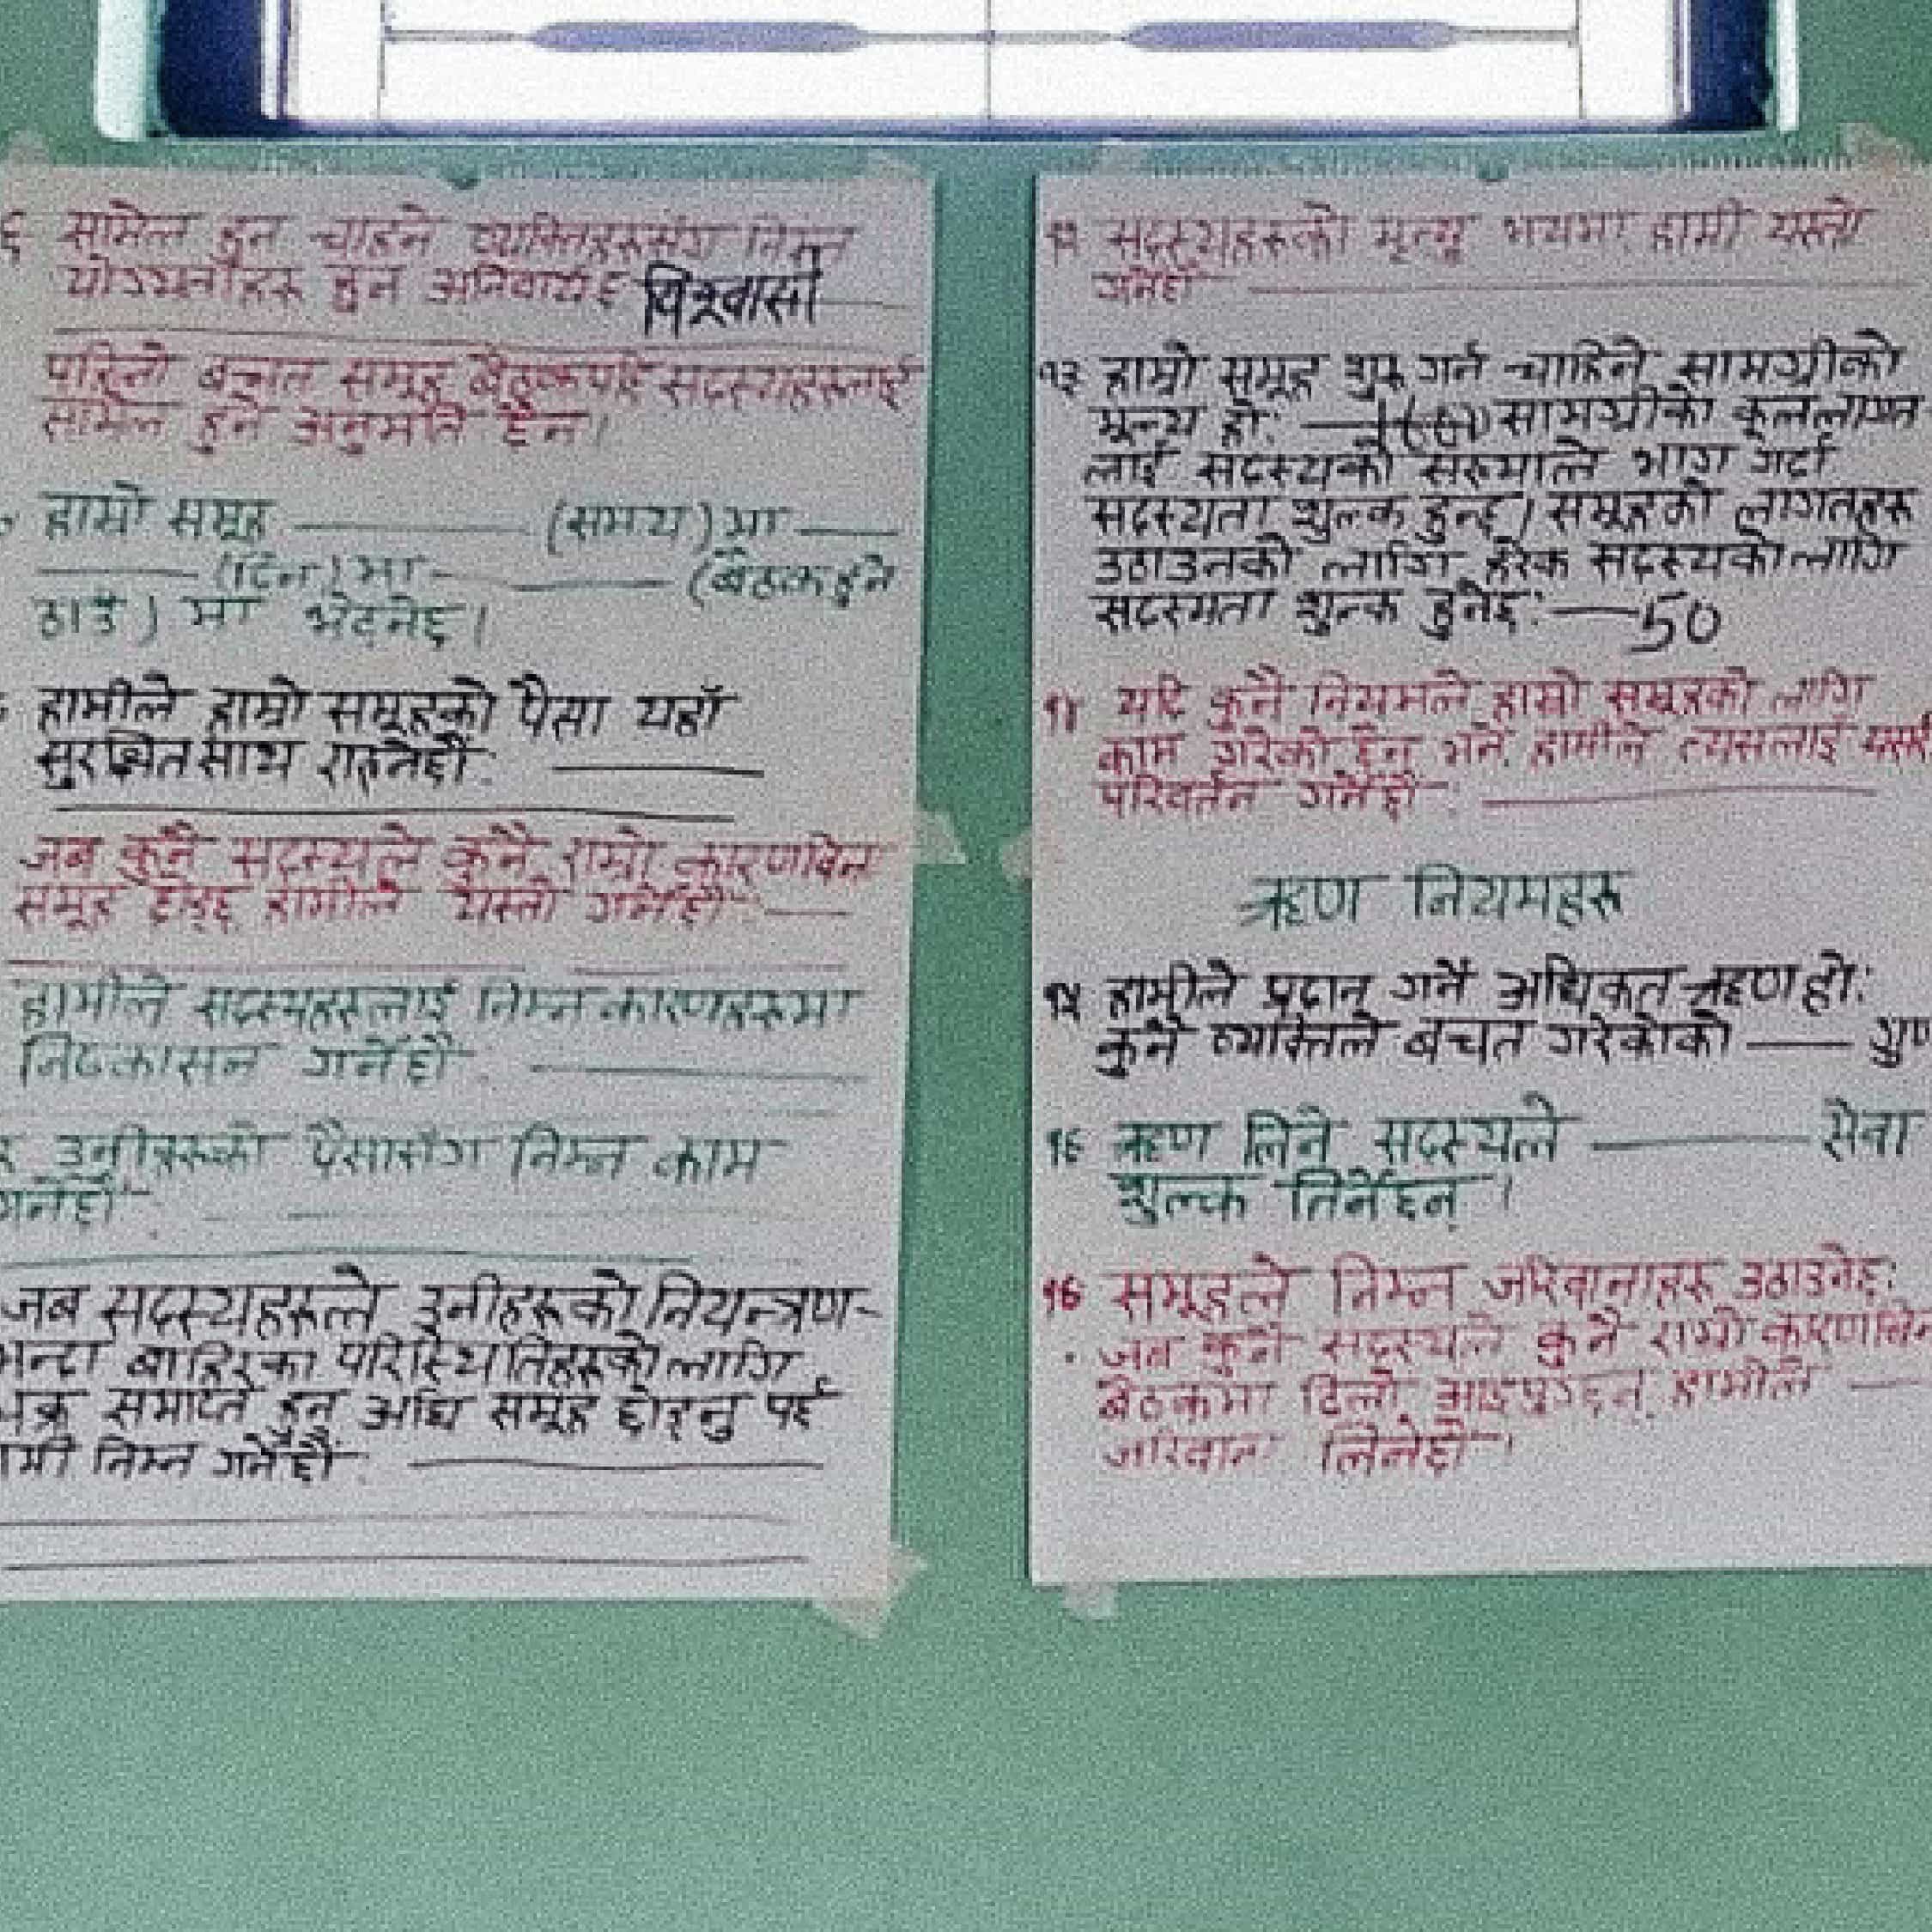 ६ सामेल हुन चाहने व्यक्तिहरूसंग निम्न
योग्यताहरू हुन अनिवार्यछ विश्वासी
पहिलो बचत समूह बैठकपछि सदस्यहरूलाई
सामेल हुने अनुमति छैन।
हाम्रो समूह ——— (समय) मा ———
——— (दिन) मा ——— (बैठक हुने
ठाउँ) मा भेट्नेछ।
हामीले हाम्रो समूहको पैसा यहाँ
सुरक्षित साथ राख्नेछौं: ———
जब कुनै सदस्यले कुनै राम्रो कारणविना
समूह छोड्छ हामीले यस्तो गर्नेछौं: ———
हामीले सदस्यहरूलाई निम्न कारणहरूमा
निष्कासन गर्नेछौं: ———
र उनीहरूको पैसासँग निम्न काम
गर्नेछौं:
जब सदस्यहरूले उनीहरूको नियन्त्रण-
भन्दा बाहिरका परिस्थितिहरूको लागि
चक्र समाप्त हुनु अघि समूह छोड्नु पर्छ
हामी निम्न गर्नेछौं: ———
१२ सदस्यहरूको मृत्यु भयमा हामी यस्तो
गर्नेछौं ———
१३ हाम्रो समूह शुरू गर्न चाहिने सामग्रीको
मूल्य हो: ——— सामग्रीको कूल लागत
लाई सदस्यको संख्याले भाग गर्दा
सदस्यता शुल्क हुन्छ। समूहको लागतहरू
उठाउनको लागि हरेक सदस्यको लागि
सदस्यता शुल्क हुनेछ: —50
१४ यदि कुनै नियमले हाम्रो समूहको लागि
काम गरेको छैन भने, हामीले त्यसलाई यसरी
परिवर्तन गर्नेछौं: ———
ऋण नियमहरू
१५ हामीले प्रदान गर्ने अधिकत ऋण हो:
कुनै व्यक्तिले बचत गरेकोको —— गुण
१६ ऋण लिने सदस्यले ——— सेवा
शुल्क तिर्नेछन्।
१७ समूहले निम्न जरिवानाहरू उठाउनेछ:
• जब कुनै सदस्यले कुनै राम्रो कारणविना
बैठकमा ढिलो आइपुग्छन्, हामीले ——
जरिवाना लिनेछौं।